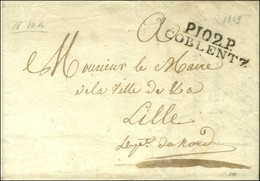 1809
P.102.P.
COBLENTZ
A
Monsieur le Maire
de la Ville de La
Lille
Dept. du Nord